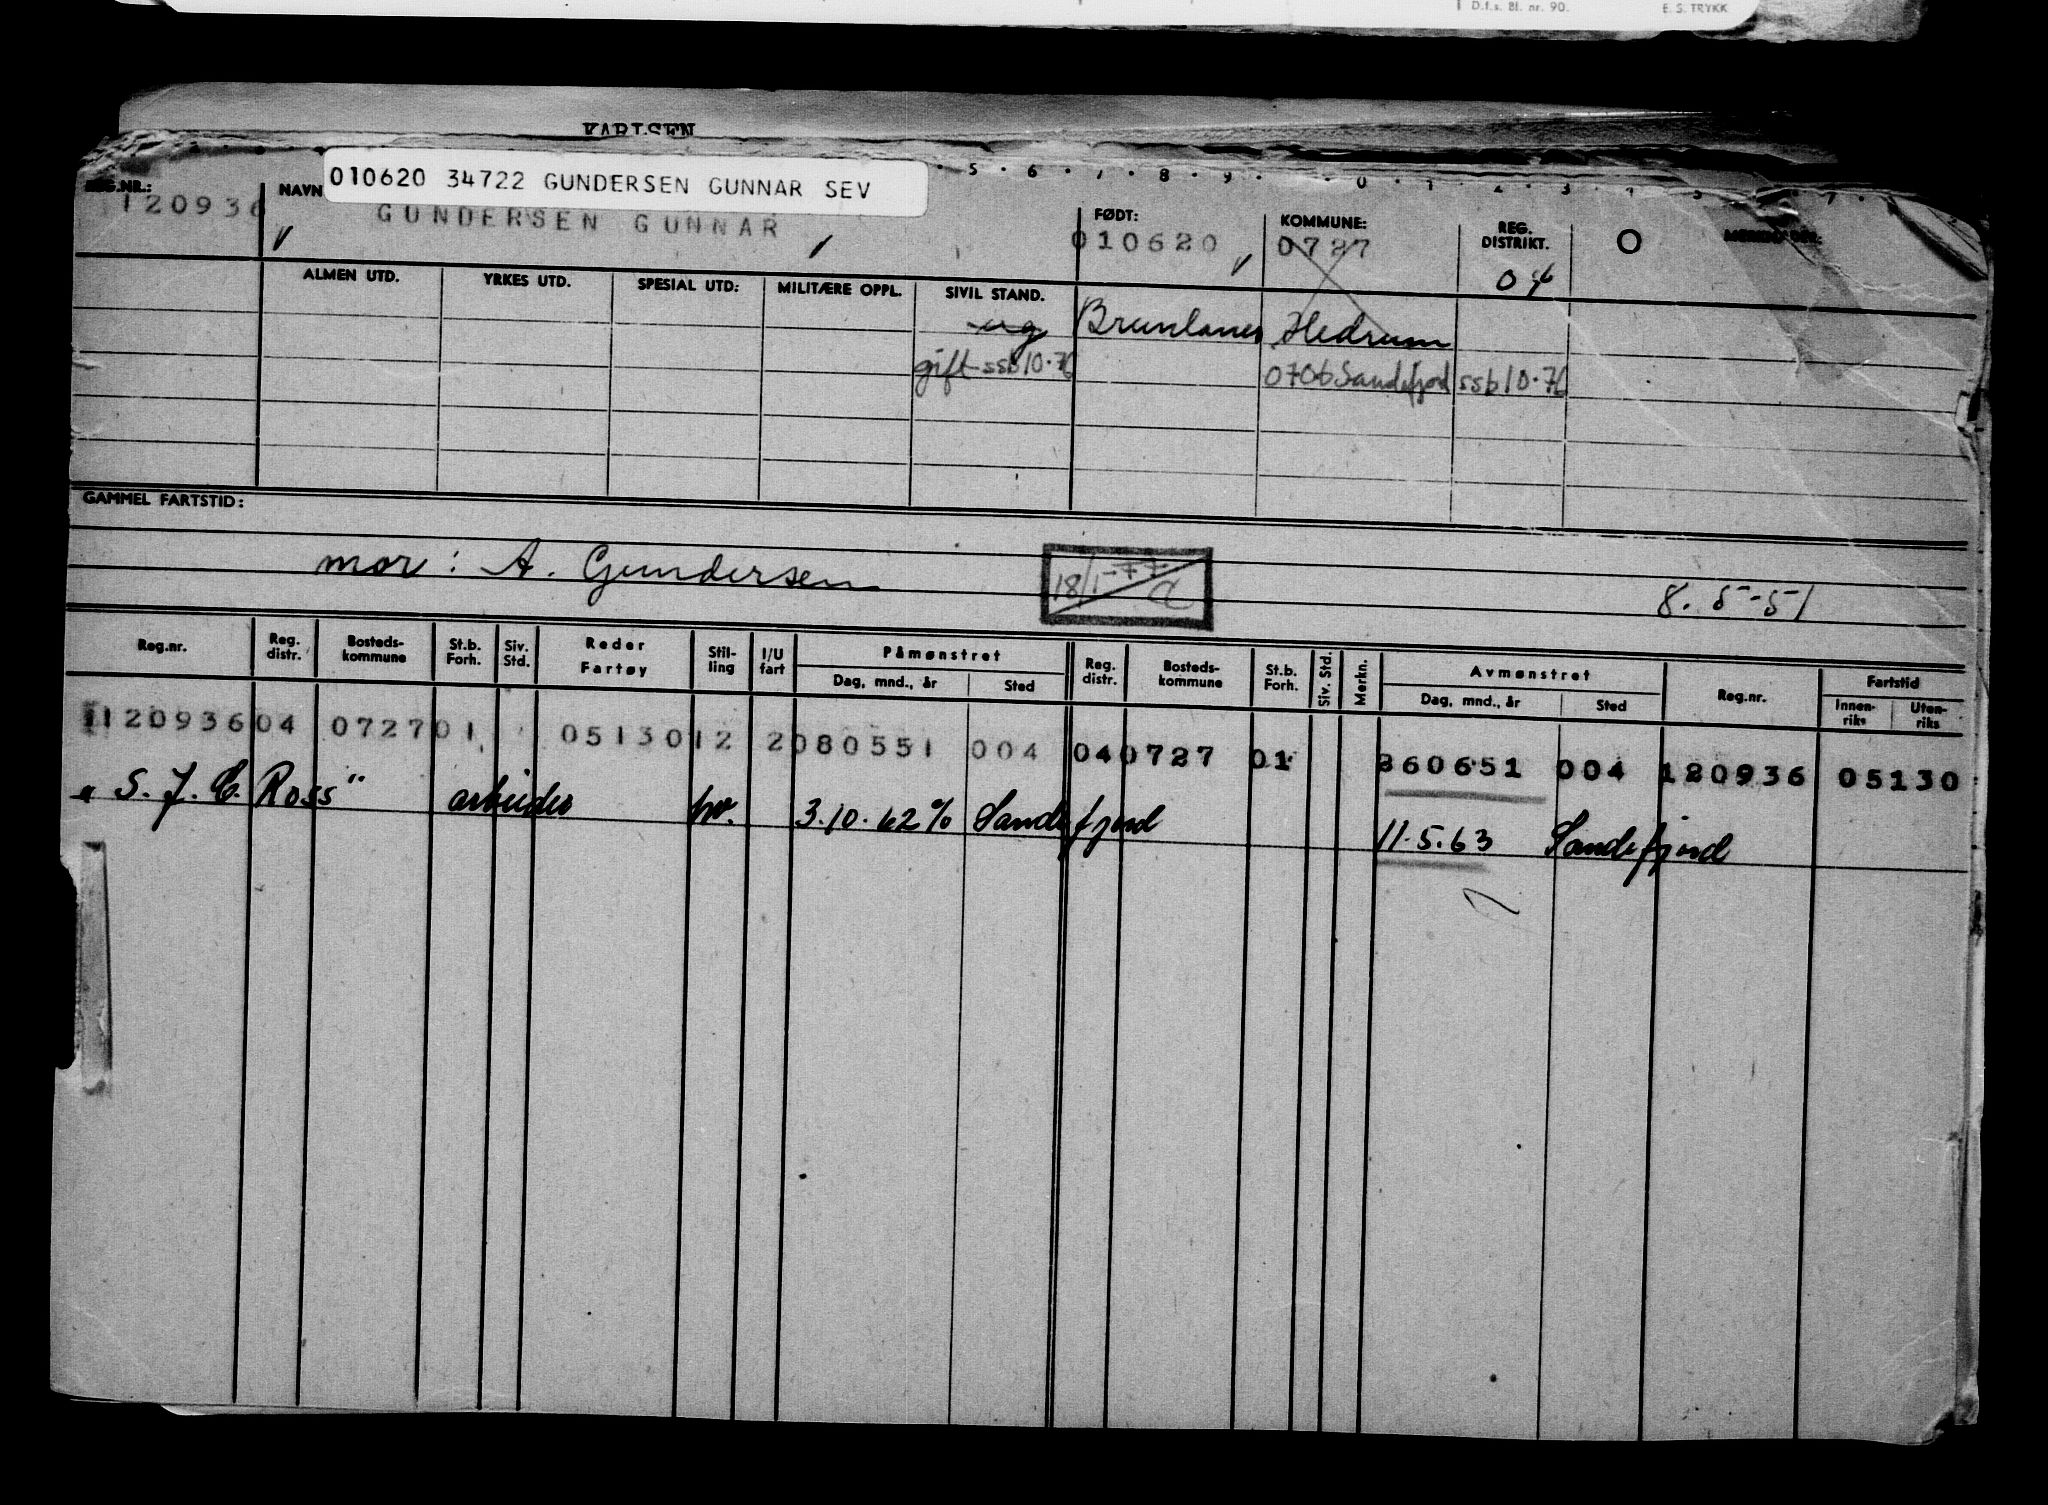 D.f.s. Bl. nr. 90. E. S. TRYKK
KARLSEN
5 . 6 . 7 . 8 . 9 . . 0 . 1 . 2 . 3 . 4 . 5
010620 34722 GUNDERSEN GUNNAR SEV
REG.NR.: NAVN FØDT: KOMMUNE: REG. DISTRIKT. MERKNADER:
120936 GUNDERSEN GUNNAR 010620 0727 04
ALMEN UTD. YRKES UTD. SPESIAL UTD: MILITÆRE OPPL. SIVIL STAND.
ug Brunlanes Hedrum
gift ssb 10.76 0706 Sandefjord ssb 10.76
GAMMEL FARTSTID:
mor: A. Gundersen 18/1-77 8.5-51
Reg.nr. Reg. distr. Bosteds-kommune St.b. Forh. Siv. Std. Reder Fartøy Stil-ling I/U fart Påmønstret Dag, mnd., år Sted Reg. distr. Bosteds-kommune St.b. Forh. Siv. Std. Merkn. Avmønstret Dag, mnd., år Sted Reg.nr. Fartstid Innen-riks Uten-riks
120936 04 0727 01 05130 12 2 080551 004 04 0727 01 260651 004 120936 05130
"S. J. E. Ross" arbeider hv. 3.10.62 % Sandefjord 11.5.63 Sandefjord